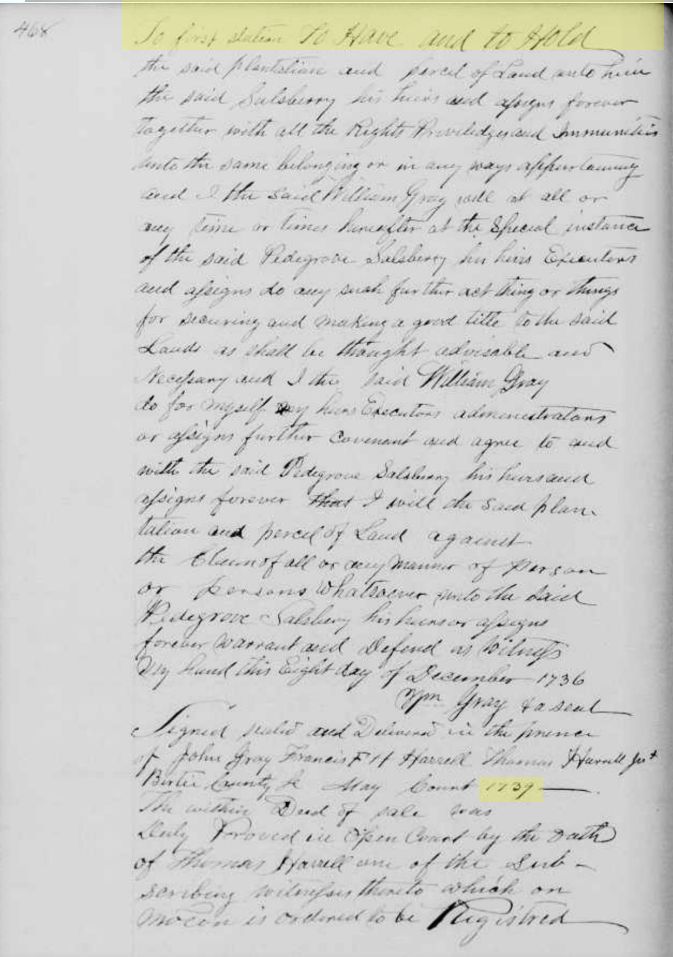 468
To first station To Have and to Hold
the said plantation and percel of Land unto him
the said Salsberry his heirs and assigns forever
together with all the Rights Priviledges and Immunities
unto the same belonging or in any ways appertaining
and I the said William Gray will at all or
any time or times hereafter at the Special instance
of the said Pedegrove Salsberry his heirs Executors
and assigns do any such further act thing or things
for securing and making a good title to the said
Lands as shall be thought advisable and
Necessary and I the said William Gray
do for myself my heirs Executors administrators
or assigns further covenant and agree to and
with the said Pedegrove Salsberry his heirs and
assigns forever that I will the said plan-
tation and percel of Land against
the Claim of all or any manner of person
or persons Whatsoever unto the said
Pedegrove Salsbery his heirs or assigns
forever warrant and Defend as Witness
My hand this Eight day of December 1736
Wm Gray & a seal
Signed sealed and Delivered in the presence
of John Gray Francis F H Harrell Thomas Harrell
Bertie County May Court 1739
The within Deed of sale was
Duly Proved in Open Court by the Oath
of Thomas Harrell one of the Sub-
scribing witnesses thereto which on
motion is ordered to be Registred